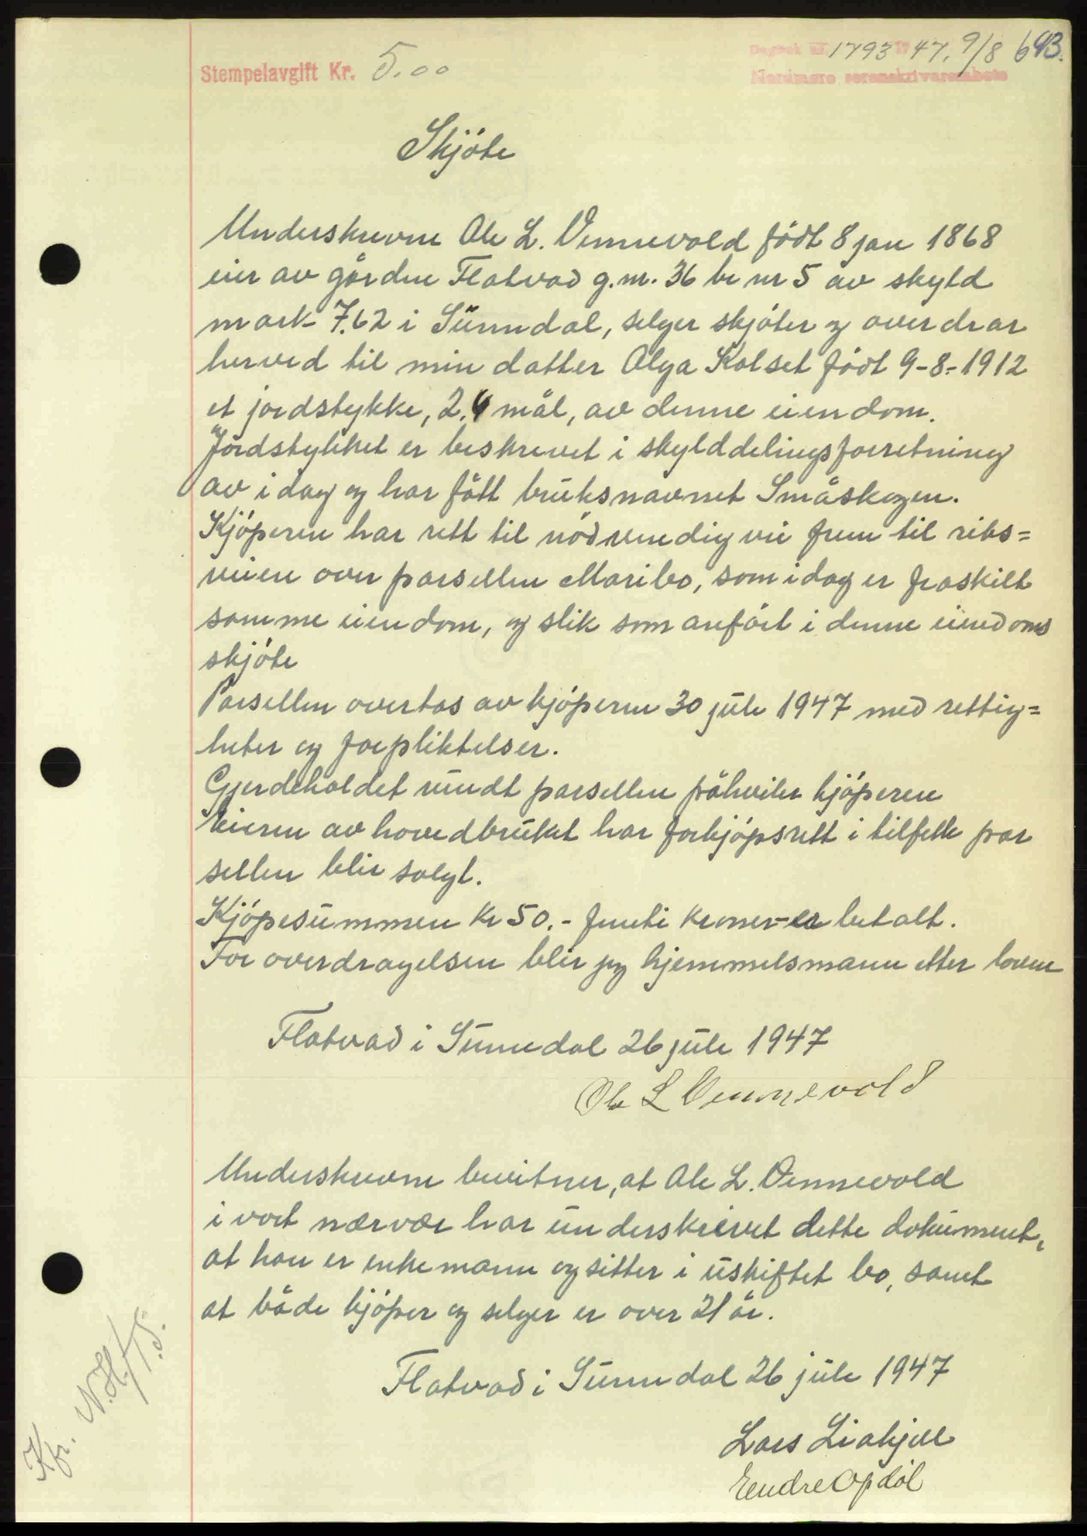 Stempelavgift Kr. 5.00
Dagbok nr. 1793 1947. 9/8 643.
Nordmøre sorenskrivarembete
Skjøte
Underskrevne Ole L. Vennevold født 8 jan 1868
eier av gården Flatvad g.nr. 36 br nr 5 av skyld
mark 7.62 i Sunndal, selger skjøter og overdrar
herved til min datter Olga Kolset født 9-8-1912
et jordstykke, 2,4 mål, av denne eiendom.
Jordstykket er beskrevet i skylddelingsforretning
av idag og har fått bruksnavnet Småskogen.
Kjøperen har rett til nødvendig vei frem til riks=
veien over parsellen Maribo, som idag er fraskilt
samme eiendom, og slik som anført i denne eiendoms
skjøte
Parsellen overtas av kjøperen 30 juli 1947 med rettig=
heter og forpliktelser.
Gjerdeholdet rundt parsellen påhviler kjøperen
Eieren av hovedbruket har forkjøpsrett i tilfelle par
sellen blir solgt.
Kjøpesummen Kr 50.- femti kroner- er betalt.
For overdragelsen blir jeg hjemmelsmann etter loven
Flatvad i Sunndal 26 juli 1947
Ole L Vennevold
Underskrevne bevitner, at Ole L. Vennevold
i vort nærvær har underskrevet dette dokument,
at han er enkemann og sitter i uskiftet bo, samt
at både kjøper og selger er over 21 år.
Flatvad i Sunndal 26 juli 1947
Lars Liahjell
Endre Opdøl
Kfr. N.H./T.S.